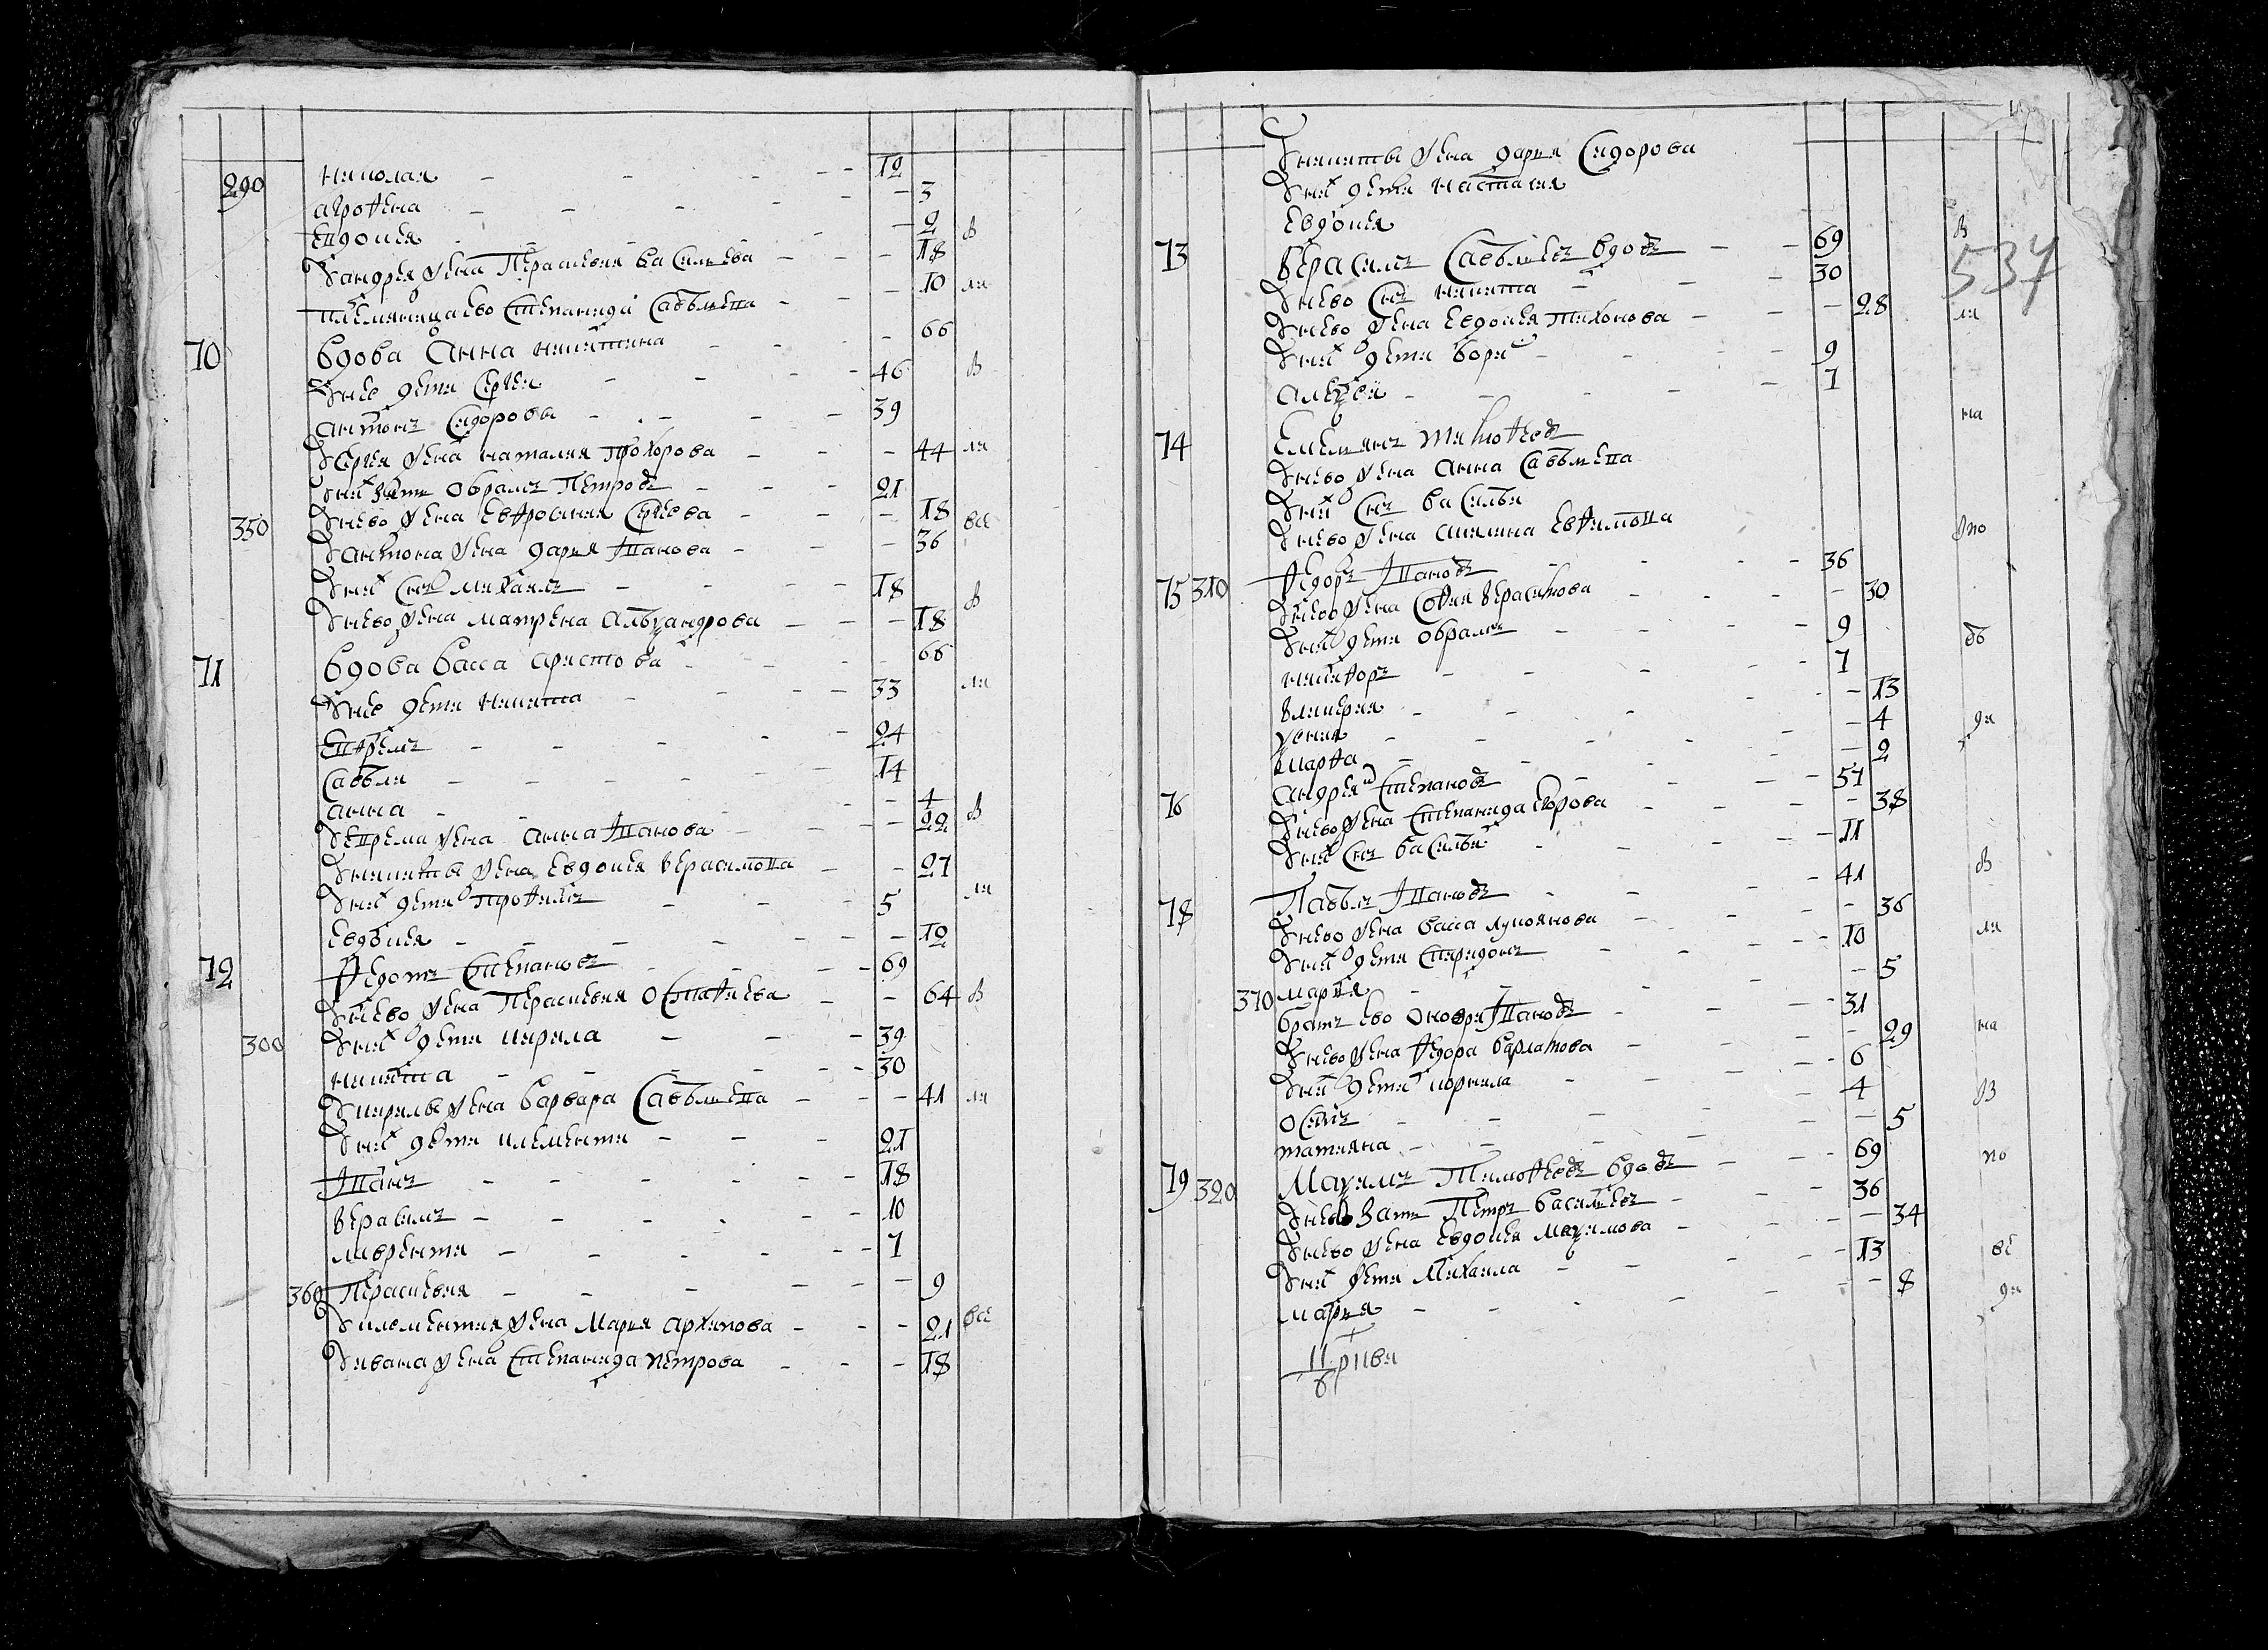 290 николая 12
агрофена 3
евдокия 2 в
андрея жена Парасковия василиева 18
племянница ево степанида савельева 10 ли
70 вдова анна никитина 66
у нее дети сергеи 46 в
антонъ сидорова 39
сергея жена наталия прохорова 44 ли
у них зять обрамъ петровъ 21
350 у него жена евфросиния сергеева 18 всё
антона жена дария иванова 36
у них снъ михаилъ 18
у него жена матрена алеѯандрова 18 в
71 вдова васса аристова 66
у нее дети никита 33 ли
ефремъ 24
савели 14
анна 4
ефрема жена анна иванова 22 в
у никиты жена евдокия герасимова 27
у них дети трофимъ 5 ли
евдокия 12
72 федотъ степановъ 69
у него жена Парасковия остафиева 64 в
300 у них дети кирила 39
никита 30
у кирилы жена варвара савельева 41 ли
у них дети клементи 21
иванъ 18
герасимъ 10
лаврентя 7
360 парасковия 9
у клементия жена Мария архипова 21 всё
у ивана жена степанида петрова 18
у никиты жена дария сидорова
у них дети настасия
евдокия
в
73 герасимъ савельевъ вдовъ 69
537
у него снъ никита 30
у него жена евдокия тихонова 28 ли
у них дети борисъ 9
алеѯеи 7
на
74 емельянъ тимофеевъ
у него жена анна савельева
у них снъ василеи
у него жена акилина евфимова
75 310 федоръ ивановъ 36
у него жена софия герасимова 30
у них дети обрамъ 9
никифоръ 7
гликерия 13
ѯения 4 ди
марфа 2
76 андреи степановъ 57
у него жена степанида егорова 38
у них снъ василеи 11
78 Павелъ ивановъ 41 в
у него жена васса лукоянова 36
у них дети спиридонъ 10 ли
370 марфа 5
братъ ево онофри ивановъ 31
у него жена федора варламова 29 на
у них дети корнила 6
осипъ 4 в
татияна 5
79 320 Маѯимъ Тимофеевъ вдовъ 69 по
у него зять Петръ василиевъ 36
у него жена евдокия маѯимова 34
у них дети Михаила 13 вё
мария 8 ди